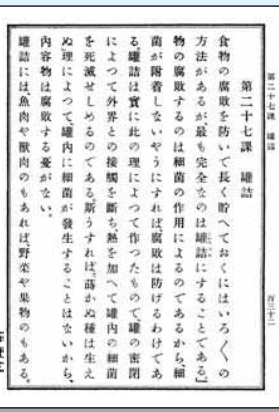 第二十七課　罐詰
百三十二
第二十七課　罐詰
食物の腐敗を防いで長く貯へておくにはいろ〱の
方法があるが、最も完全なのは罐詰にすることである。』
物の腐敗するのは細菌の作用によるのであるから、細
菌が附着しないやうにすれば、腐敗は防げるわけであ
る。罐詰は實に此の理によつて作つたもので、罐の密閉
によつて外界との接觸を斷ち、熱を加へて罐内の細菌
を死滅せしめるのである。斯うすれば、『蒔かぬ種は生え
ぬ』理によつて、罐内に細菌が發生することはないから、
内容物は腐敗する憂がない。
罐詰には、魚肉や獸肉のもあれば、野菜や果物のもある。